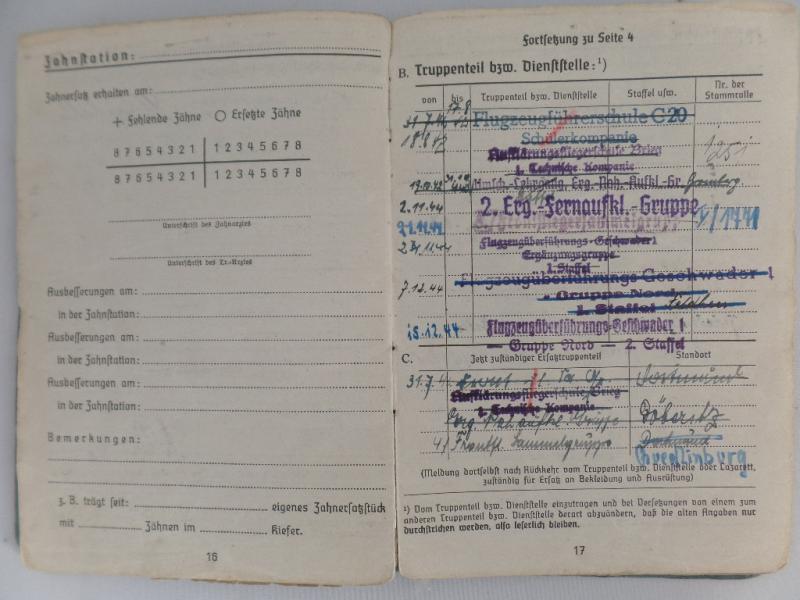 Zahnstation:
Zahnersatz erhalten am:
+ Fehlende Zähne O Ersetzte Zähne
8 7 6 5 4 3 2 1 | 1 2 3 4 5 6 7 8
8 7 6 5 4 3 2 1 | 1 2 3 4 5 6 7 8
Unterschrift des Zahnarztes
Unterschrift des Tr.-Arztes
Ausbesserungen am:
in der Zahnstation:
Ausbesserungen am:
in der Zahnstation:
Ausbesserungen am:
in der Zahnstation:
Bemerkungen:
z. B. trägt seit: eigenes Zahnersatzstück
mit Zähnen im Kiefer.
16
Fortsetzung zu Seite 4
B. Truppenteil bzw. Dienststelle:¹)
von bis Truppenteil bzw. Dienststelle Staffel usw. Nr. der Stammrolle
17.8
Flugzeugführerschule C 20
18.8.42 Schülerkompanie
Aufklärungsfliegerschule Brieg
1. Technische Kompanie
-Lehrgang, Erg. Nah-Aufkl.-Gr.
2.11.44 2. Erg.-Fernaufkl.-Gruppe
21.11.44
Flugzeugüberführungs-Geschwader 1
Ergänzungsgruppe
1. Staffel
7.12.44 Flugzeugüberführungs Geschwader 1
Gruppe Nord
1. Staffel
15.12.44 Flugzeugüberführungs-Geschwader 1
— Gruppe Nord — 2. Staffel
C. Jetzt zuständiger Ersatztruppenteil Standort
31.7.4 Dortmund
Aufklärungsfliegerschule Brieg
1. Technische Kompanie
Erg. Nah.aufkl. Gruppe Döberitz
4) Frontfl. Sammelgruppe Dortmund
Quedlinburg
(Meldung dortselbst nach Rückkehr vom Truppenteil bzw. Dienststelle oder Lazarett,
zuständig für Ersatz an Bekleidung und Ausrüstung)
¹) Vom Truppenteil bzw. Dienststelle einzutragen und bei Versetzungen von einem zum
anderen Truppenteil bzw. Dienststelle derart abzuändern, daß die alten Angaben nur
durchstrichen werden, also leserlich bleiben.
17